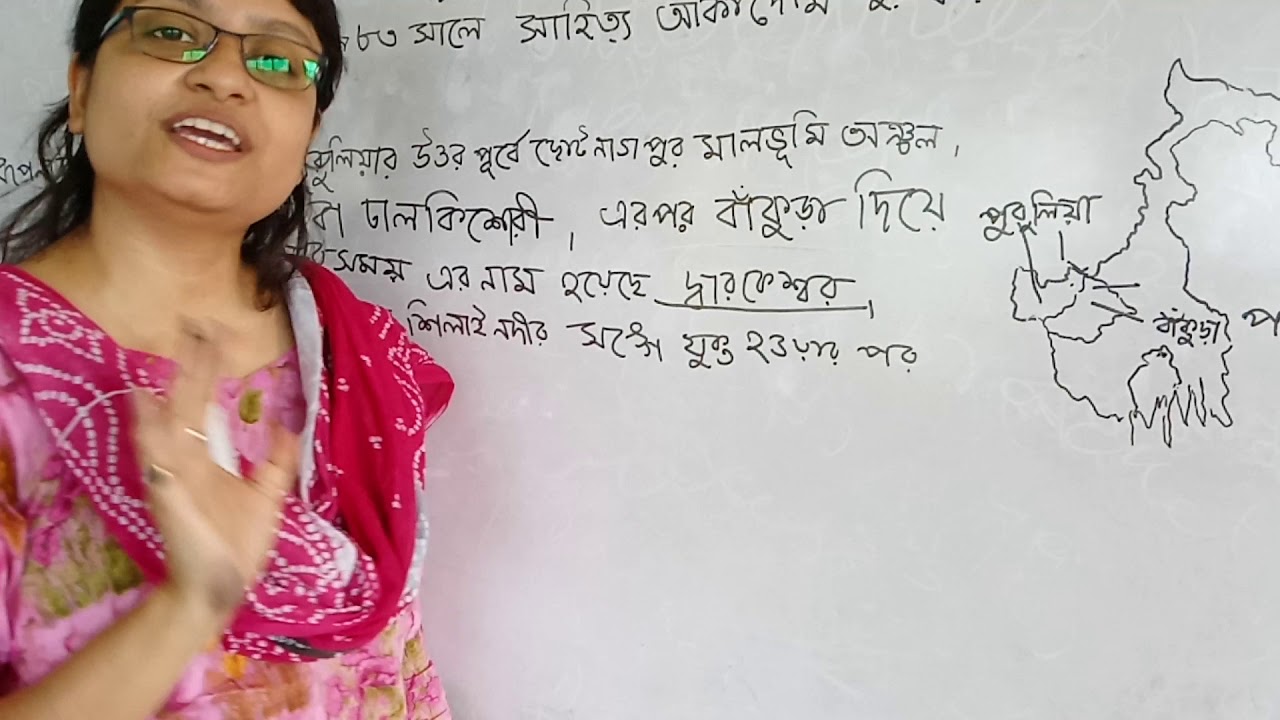 ৮৩ সালে সাহিত্য আকাদেমি
পুরুলিয়ার উত্তর পূর্বে ছোটনাগপুর মালভূমি অঞ্চল,
বা ঢালকিশোরী, এরপর বাঁকুড়া দিয়ে
সময় এর নাম হয়েছে দ্বারকেশ্বর,
শিলাই নদীর সঙ্গে যুক্ত হওয়ার পর
পুরুলিয়া
বাঁকুড়া